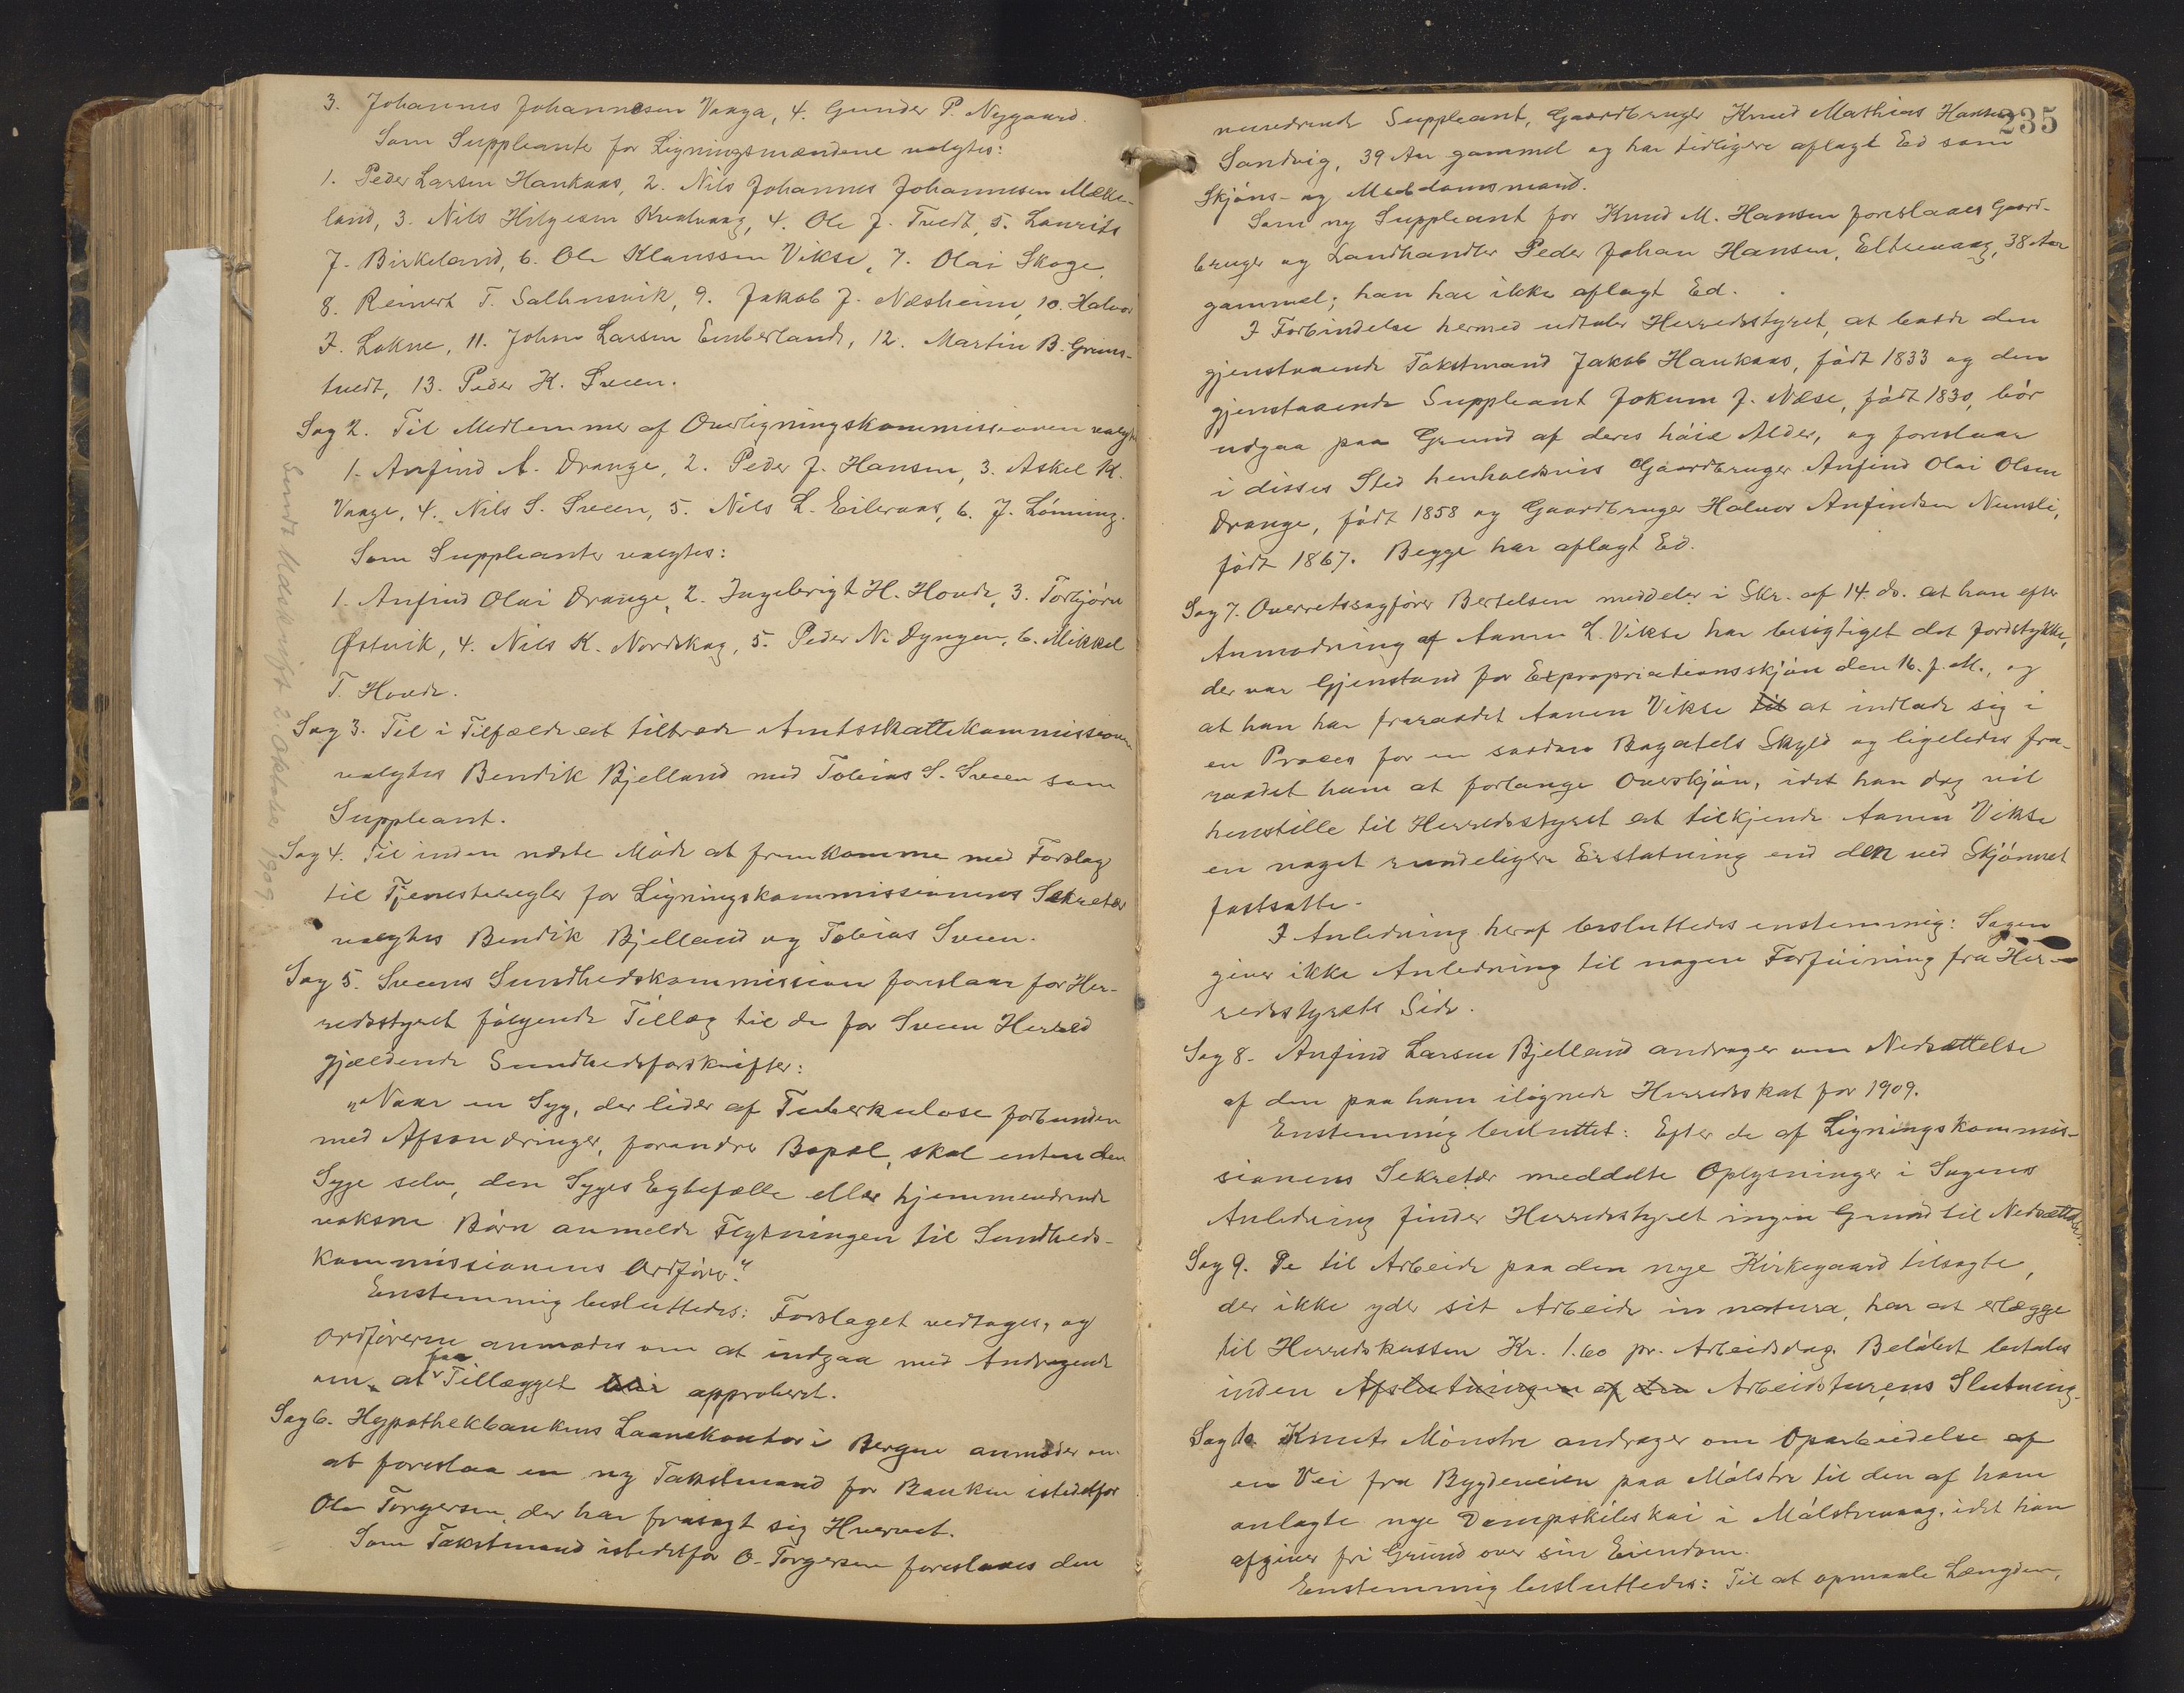 3. Johannes Johannesen Vaaga, 4. Gunder P. Nygaard.
Som Suppleanter for Ligningsmændene valgtes:
1. Peder Larsen Haukaas, 2. Nils Johannes Johannesen Mæke-
land, 3. Nils Helgesen Kvalvaag, 4. Ole J. Tvedt, 5. Laurits
J. Birkeland, 6. Ole Klaussen Vikse, 7. Olai Skoge,
8. Reinert T. Salhusvik, 9. Jakob J. Næsheim, 10. Halvor
J. Lokne, 11. Johan Larsen Emberland, 12. Martin B. Grims-
tvedt, 13. Peder K. Sveen.
Sag 2. Til Medlemmer af Overligningskommissionen valgtes
1. Anfind A. Drange, 2. Peder J. Hansen, 3. Askel K.
Vaage, 4. Nils S. Sveen, 5. Nils L. Eileraas, 6. J. Lønning.
Som Suppleanter valgtes:
1. Anfind Olai Drange, 2. Ingebrigt H. Hovde, 3. Torbjørn
Østvik, 4. Nils K. Nordskog, 5. Peder N. Dyngen, 6. Mikkel
T. Hovde.
Sag 3. Til i Tilfælde at tiltræde Amtsskattekommissionen
valgtes Bendik Bjelland med Tobias S. Sveen som
Suppleant.
Sag 4. Til inden næste Møde at fremkomme med Forslag
til Tjenesteregler for Ligningskommissionens Sekretær
valgtes Bendik Bjelland og Tobias Sveen.
Sag 5. Sveens Sundhedskommission foreslaar for Her-
redsstyret følgende Tillæg til de for Sveen Herred
gjældende Sundhedsforskrifter:
"Naar en Syg, der lider af Tuberkulose forbunden
med Afsondringer, forandrer Bopæl, skal enten den
Syge selv, den Syges Egtefælle eller hjemmeværende
voksne Børn anmelde Flytningen til Sundheds-
kommissionens Ordfører."
Enstemmig besluttedes: Forslaget vedtages, og
Ordføreren anmodes om at indgaa med Andragende
om at faa Tillægget approberet.
Sag 6. Hypothekbankens Laanekontor i Bergen anmoder om
at foreslaa en ny Takstmand for Banken istedetfor
Ole Torgersen, der har frasagt sig Hvervet.
Som Takstmand istedetfor O. Torgersen foreslaaes den
Sendt Udskrift 2. Oktober 1909.
235
nuværende Suppleant, Gaardbruger Knud Mathias Hansen
Sandvig, 39 Aar gammel og har tidligere aflagt Ed som
Skjøns- og Meddomsmand.
Som ny Suppleant for Knud M. Hansen foreslaaes Gaard-
bruger og Landhandler Peder Johan Hansen, Eltrevaag, 38 Aar
gammel; han har ikke aflagt Ed.
I Forbindelse hermed udtaler Herredsstyret, at baade den
gjenstaaende Takstmand Jakob Haukaas, født 1833 og den
gjenstaaende Suppleant Jokum J. Næse, født 1830, bør
udgaa paa Grund af deres høie Alder, og foreslaar
i disses Sted henholdsvis Gaardbruger Anfind Olai Olsen
Drange, født 1858 og Gaardbruger Halvor Anfindsen Nernsli,
født 1867. Begge har aflagt Ed.
Sag 7. Overretssagfører Bertelsen meddeler i Skr. af 14. ds. at han efter
Anmodning af Aamen L. Vikse har besigtiget det Jordstykke,
der var Gjenstand for Expropriationsskjøn den 16. f. M., og
at han har fraraadet Aanen Vikse til at indlade sig i
en Proces for en saadan Bagatels Skyld og ligeledes fra-
raadet ham at forlange Overskjøn, idet han dog vil
henstille til Herredsstyret at tilkjende Aanen Vikse
en noget rundeligere Erstatning end den ved Skjønnet
fastsatte.
I Anledning heraf besluttedes enstemmig: Sagen
giver ikke Anledning til nogen Forføining fra Her-
redsstyrets Side.
Sag 8. Anfind Larsen Bjelland andrager om Nedsættelse
af den paa ham ilignede Herredsskat for 1909.
Enstemmig besluttet: Efter de af Ligningskommis-
sionens Sekretær meddelte Oplysninger i Sagens
Anledning finder Herredsstyret ingen Grund til Nedsættelse.
Sag 9. De til Arbeide paa den nye Kirkegaard tilsagte,
der ikke yder sit Arbeide in natura, har at erlægge
til Herredskassen Kr. 1.60 pr. Arbeidsdag. Beløbet betales
inden Afslutningen af den Arbeidsturens Slutning.
Sag 10. Knut Mønstre andrager om Oparbeidelse af
en Vei fra Bygdeveien paa Mølstre til den af ham
anlagte nye Dampskibskai i Mølstrevaag, idet han
afgiver fri Grund over sin Eiendom.
Enstemmig besluttedes: Til at opmaale Længden,